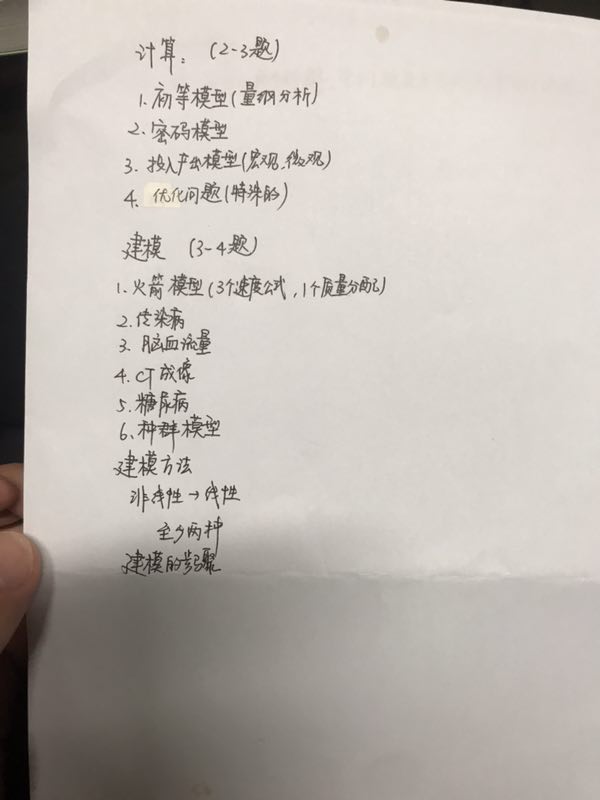 计算：（2-3题）
1. 初等模型（量纲分析）
2. 密码模型
3. 投入产出模型（宏观、微观）
4. 优化问题（特殊的）
建模（3-4题）
1. 火箭模型（3个速度公式，1个质量分配）
2. 传染病
3. 脑血流量
4. CT成像
5. 糖尿病
6. 种群模型
建模方法
非线性→线性
至少两种
建模的步骤